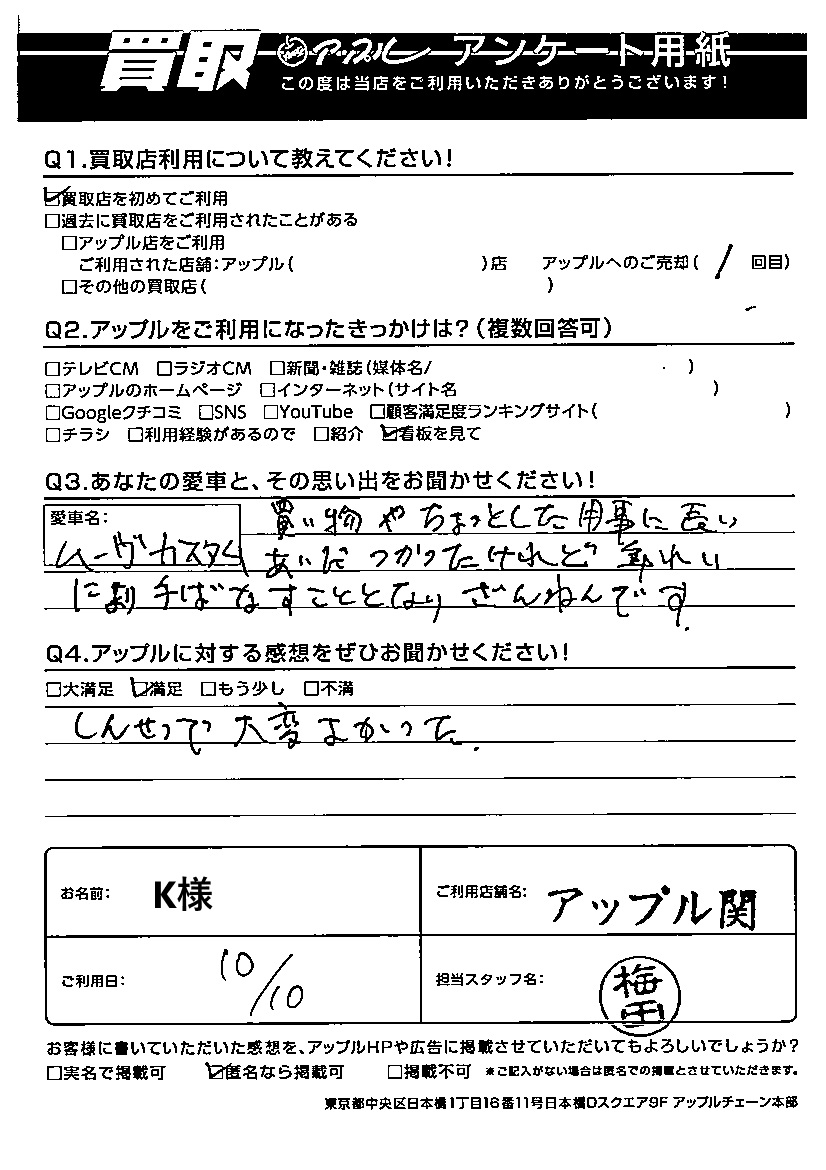 買取 アップル アンケート用紙
この度は当店をご利用いただきありがとうございます!
Q1.買取店利用について教えてください!
☑買取店を初めてご利用
□過去に買取店をご利用されたことがある
□アップル店をご利用
ご利用された店舗:アップル( )店 アップルへのご売却( 1 回目)
□その他の買取店( )
Q2.アップルをご利用になったきっかけは?(複数回答可)
□テレビCM □ラジオCM □新聞・雑誌(媒体名/ )
□アップルのホームページ □インターネット(サイト名 )
□Googleクチコミ □SNS □YouTube □顧客満足度ランキングサイト( )
□チラシ □利用経験があるので □紹介 ☑看板を見て
Q3.あなたの愛車と、その思い出をお聞かせください!
愛車名: 買い物やちょっとした用事に長い
ムーヴカスタム あいだつかったけれど
により手ばなすこととなりざんねんです.
Q4.アップルに対する感想をぜひお聞かせください!
□大満足 ☑満足 □もう少し □不満
しんせつで大変よかった.
お名前: K様 ご利用店舗名: アップル関
ご利用日: 10/10 担当スタッフ名: 梅田
お客様に書いていただいた感想を、アップルHPや広告に掲載させていただいてもよろしいでしょうか?
□実名で掲載可 ☑匿名なら掲載可 □掲載不可 *ご記入がない場合は匿名での掲載とさせていただきます。
東京都中央区日本橋1丁目16番11号日本橋Dスクエア9F アップルチェーン本部